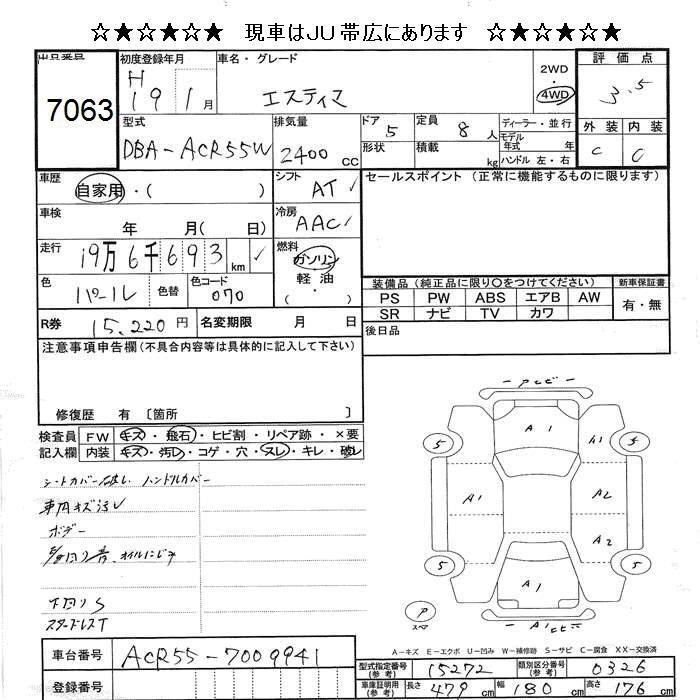 ☆★☆★☆★ 現車はJU帯広にあります ☆★☆★☆★
出品番号 7063
初度登録年月 H 19 1月
車名・グレード エスティマ
2WD ・ 4WD
評価点 3.5
外装 C 内装 C
型式 DBA-ACR55W
排気量 2400 cc
ドア 5 定員 8 人
形状 積載 kg
ディーラー・並行
モデル年式 年
ハンドル 左・右
車歴 自家用・( )
シフト AT
セールスポイント (正常に機能するものに限ります)
車検 年 月( 日)
冷房 AAC
走行 19万6千693 km
燃料 ガソリン 軽油 ( ・ )
色 パール 色替 色コード 070
装備品 (純正品に限り○をつけてください) 新車保証書
PS PW ABS エアB AW 有・無
SR ナビ TV カワ
R券 15,220円 名変期限 月 日
後日品
注意事項申告欄(不具合内容等は具体的に記入して下さい)
修復歴 有 〔箇所 〕
検査員 FW キズ・飛石・ヒビ割・リペア跡・×要
記入欄 内装 キズ・汚レ・コゲ・穴・スレ・キレ・破レ
シートカバー破レ ハンドルカバー
車内キズ汚レ
ボデー
オイルにじみ
下回りS
スタッドレスT
A1
A1
A2
A2
A1
5
5
5
P
スペア
A－キズ E－エクボ U－凹み W－補修跡 S－サビ C－腐食 XX－交換済
車台番号 ACR55-7009941
登録番号
型式指定番号(参考) 15272 類別区分番号(参考) 0326
車庫証明用(参考) 長さ 479 cm 幅 180 cm 高さ 176 cm